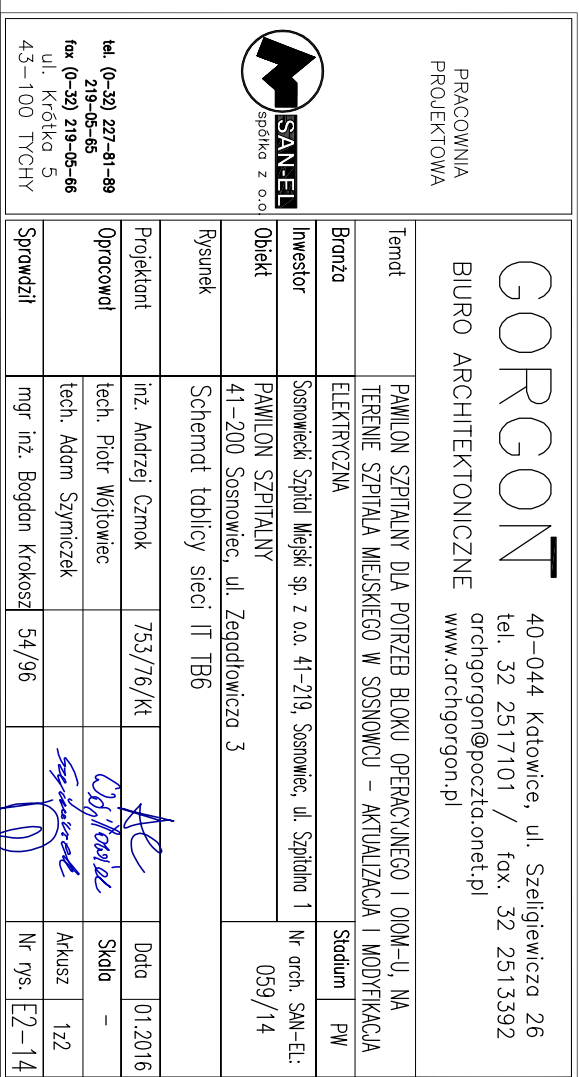 GORGON
BIURO ARCHITEKTONICZNE
40-044 Katowice, ul. Szeligiewicza 26
tel. 32 2517101 / fax. 32 2513392
archgorgon@poczta.onet.pl
www.archgorgon.pl
PRACOWNIA
PROJEKTOWA
SAN-EL
spółka z o.o.
tel. (0-32) 227-81-89
219-05-65
fax (0-32) 219-05-66
ul. Krótka 5
43-100 TYCHY
Temat
PAWILON SZPITALNY DLA POTRZEB BLOKU OPERACYJNEGO I OIOM-U, NA
TERENIE SZPITALA MIEJSKIEGO W SOSNOWCU - AKTUALIZACJA I MODYFIKACJA
Branża
ELEKTRYCZNA
Stadium
PW
Inwestor
Sosnowiecki Szpital Miejski sp. z o.o. 41-219, Sosnowiec, ul. Szpitalna 1
Nr arch. SAN-EL:
059/14
Obiekt
PAWILON SZPITALNY
41-200 Sosnowiec, ul. Zegadłowicza 3
Rysunek
Schemat tablicy sieci IT TB6
Projektant
inż. Andrzej Czmok
753/76/Kt
Data
01.2016
Opracował
tech. Piotr Wójtowiec
Wójtowiec
Skala
-
tech. Adam Szymiczek
Szymiczek
Arkusz
1z2
Sprawdził
mgr inż. Bogdan Krokosz
54/96
Nr rys.
E2-14